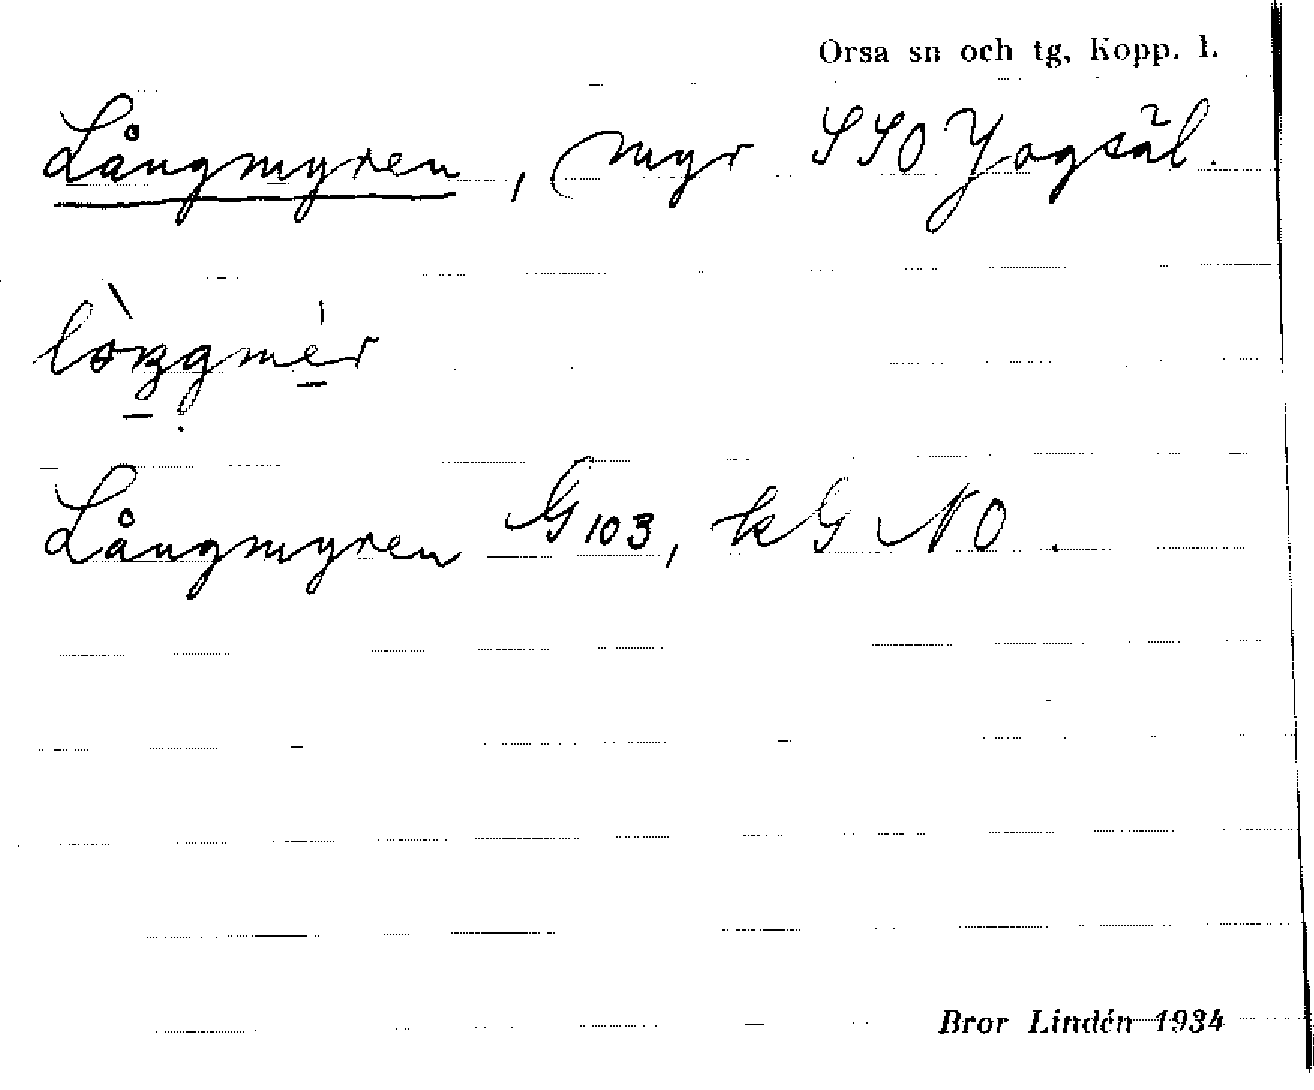 Orsa sn och tg, Kopp. l.
Långmyren, myr SSO
Långmyren G 103, kG NO.
Bror Lindén 1934